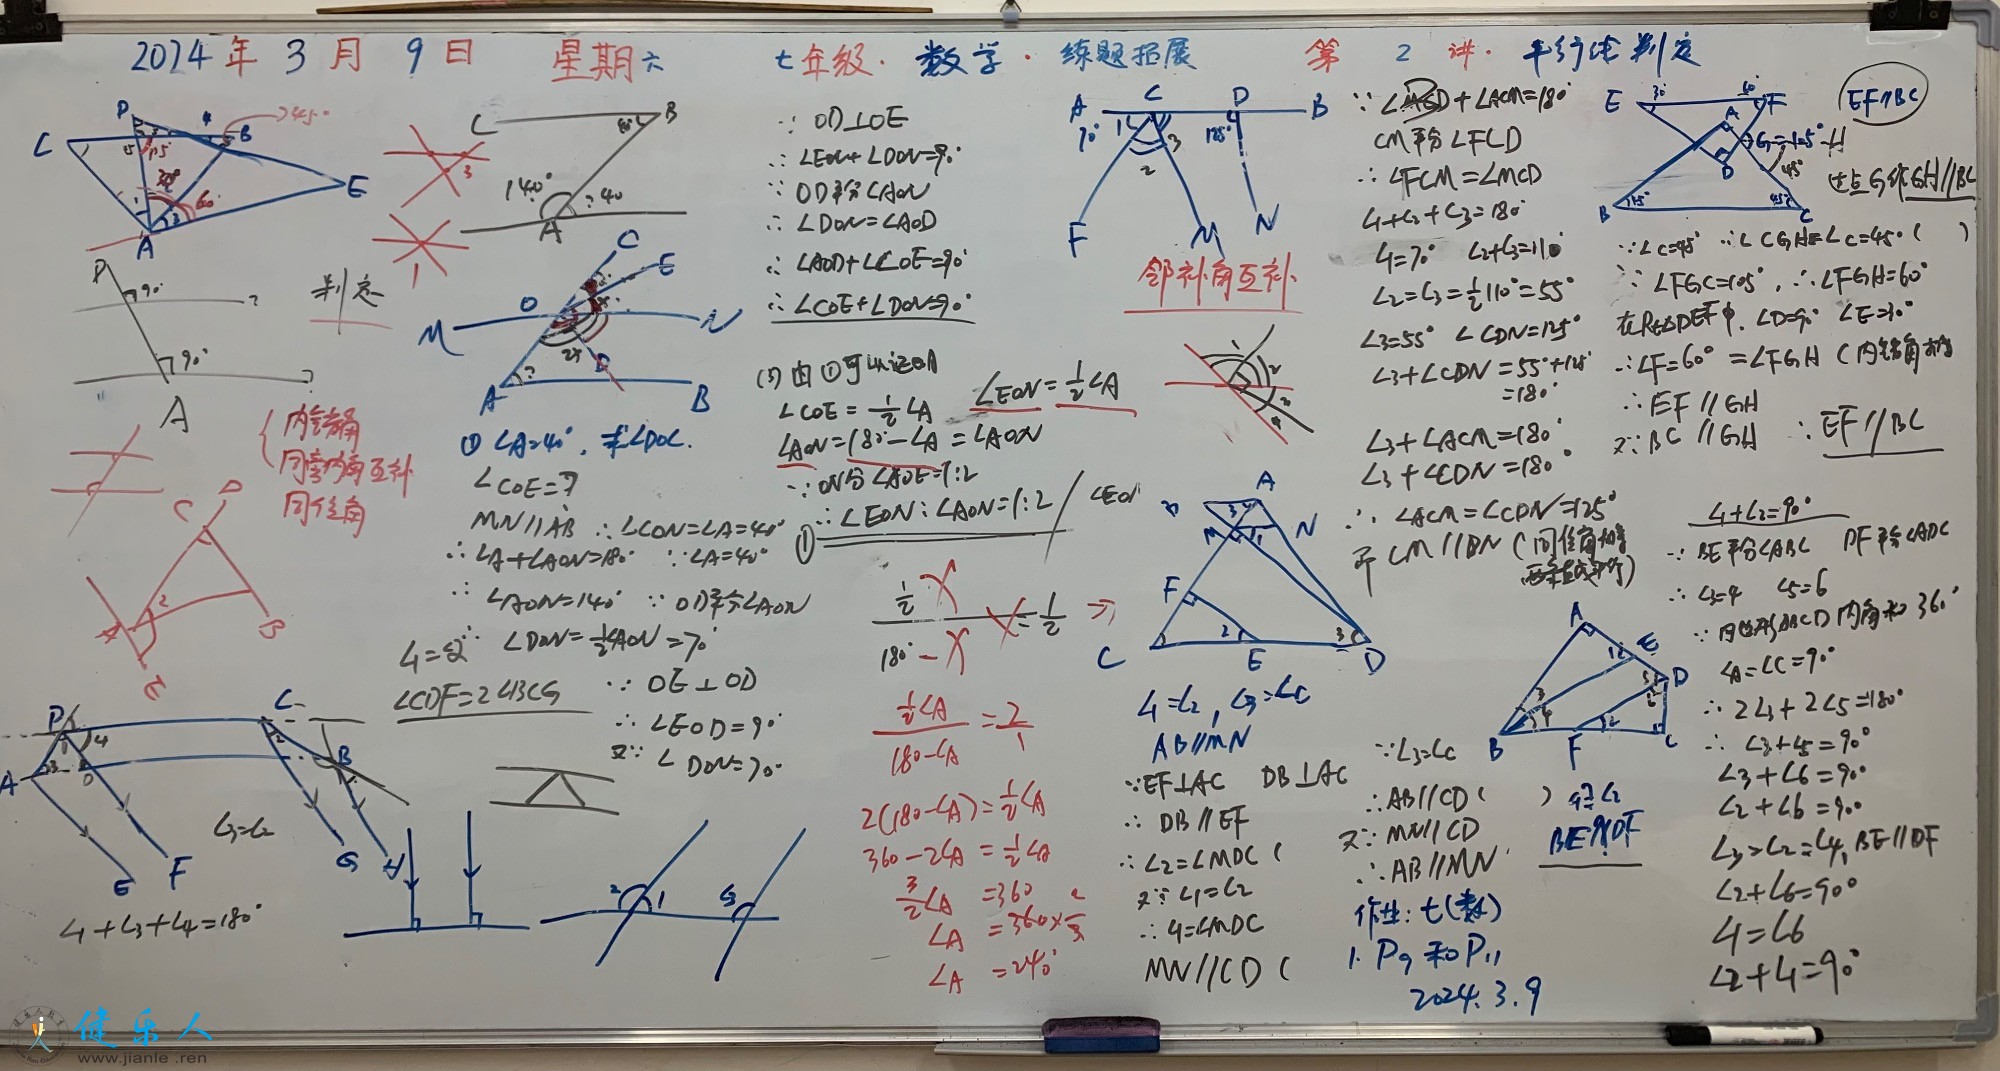 2024年3月9日 星期六 七年级·数学·练题拓展 第2讲·平行线判定
C P 4 B >45°
E
A
P 90° ?
90° ?
A
判定
内错角
同旁内角互补
同位角
C D
2
B
E
3
1
C B
140° ?40
A
C E
M O N
D
A ? B
① ∠A=40°,求∠DOC.
∠COE=?
MN//AB ∴∠CON=∠A=40°
∴∠A+∠AON=180° ∵∠A=40°
∴∠AON=140° ∵OD平分∠AON
∴∠DON=½∠AON=70°
∠1=∠2
∠CDF=2∠BCG
∵OE⊥OD
∴∠EOD=90°
又∵∠DON=70°
P C
4 2
A 3 D B
E F G H
∠3=∠2
∠1+∠3+∠4=180°
2 1
∵OD⊥OE
∴∠EON+∠DON=90°
∵OD平分∠AON
∴∠DON=∠AOD
∴∠AOD+∠COE=90°
∴∠COE+∠DON=90°
由①可以证明
∠COE=½∠A ∠EON=½∠A
∠AON=180°-∠A=∠AON
∵ON分∠AOE=1:2
① ∴∠EON:∠AON=1:2
½X
180°-X
=½ ⇒
½∠A
180-∠A
=2/1
2(180-∠A)=½∠A
360-2∠A=½∠A
3/2∠A=360
∠A=360×2/3
∠A=240°
A C D B
70° 1 3 125°
2
F M N
邻补角互补
1
2
3
4
A
3
M 1 N
F
2 3
C E D
∠1=∠2,∠3=∠C
AB//MN
∵EF⊥AC DB⊥AC
∴DB//EF
∴∠2=∠MDC (
又∵∠1=∠2
∴∠1=∠MDC
MN//CD (
∵∠3=∠C
∴AB//CD ( )
又∵MN//CD
∴AB//MN
+∠ACM=180°
CM平分∠FCD
∴∠FCM=∠MCD
∠1+∠2+∠3=180°
∠1=70° ∠2+∠3=110°
∠2=∠3=½110°=55°
∠3=55° ∠CDN=125°
∠3+∠CDN=55°+125°
=180°
∠3+∠ACM=180°
∠3+∠CDN=180°
∴∠ACM=∠CDN=125°
CM//DN (同位角相等
两条直线平行)
E 30° 60° F
A
G 105° H
D 45°
B 45° C
EF//BC
过点G作GH//BC
∵∠C=45° ∵∠CGH=∠C=45° ( )
∵∠FGC=105°,∴∠FGH=60°
在Rt△DEF中,∠D=90° ∠E=30°
∴∠F=60°=∠FGH (内错角相等
∴EF//GH
又∵BC//GH ∴EF//BC
∠1+∠2=90°
∵BE平分∠ABC DF平分∠ADC
∴∠3=∠4 ∠5=∠6
∵四边形ABCD内角和360°
∠A=∠C=90°
∴2∠3+2∠5=180°
∴∠3+∠5=90°
∠3+∠6=90°
∠2+∠6=90°
∠3=∠2=∠4,BE//DF
∠2+∠6=90°
∠1=∠6
∠2+∠1=90°
A
1 E
3 5 D
4 2 6
B F C
BE//DF
作业:七(数)
1. P9和P11
2024.3.9
健乐人
www.jianle.ren